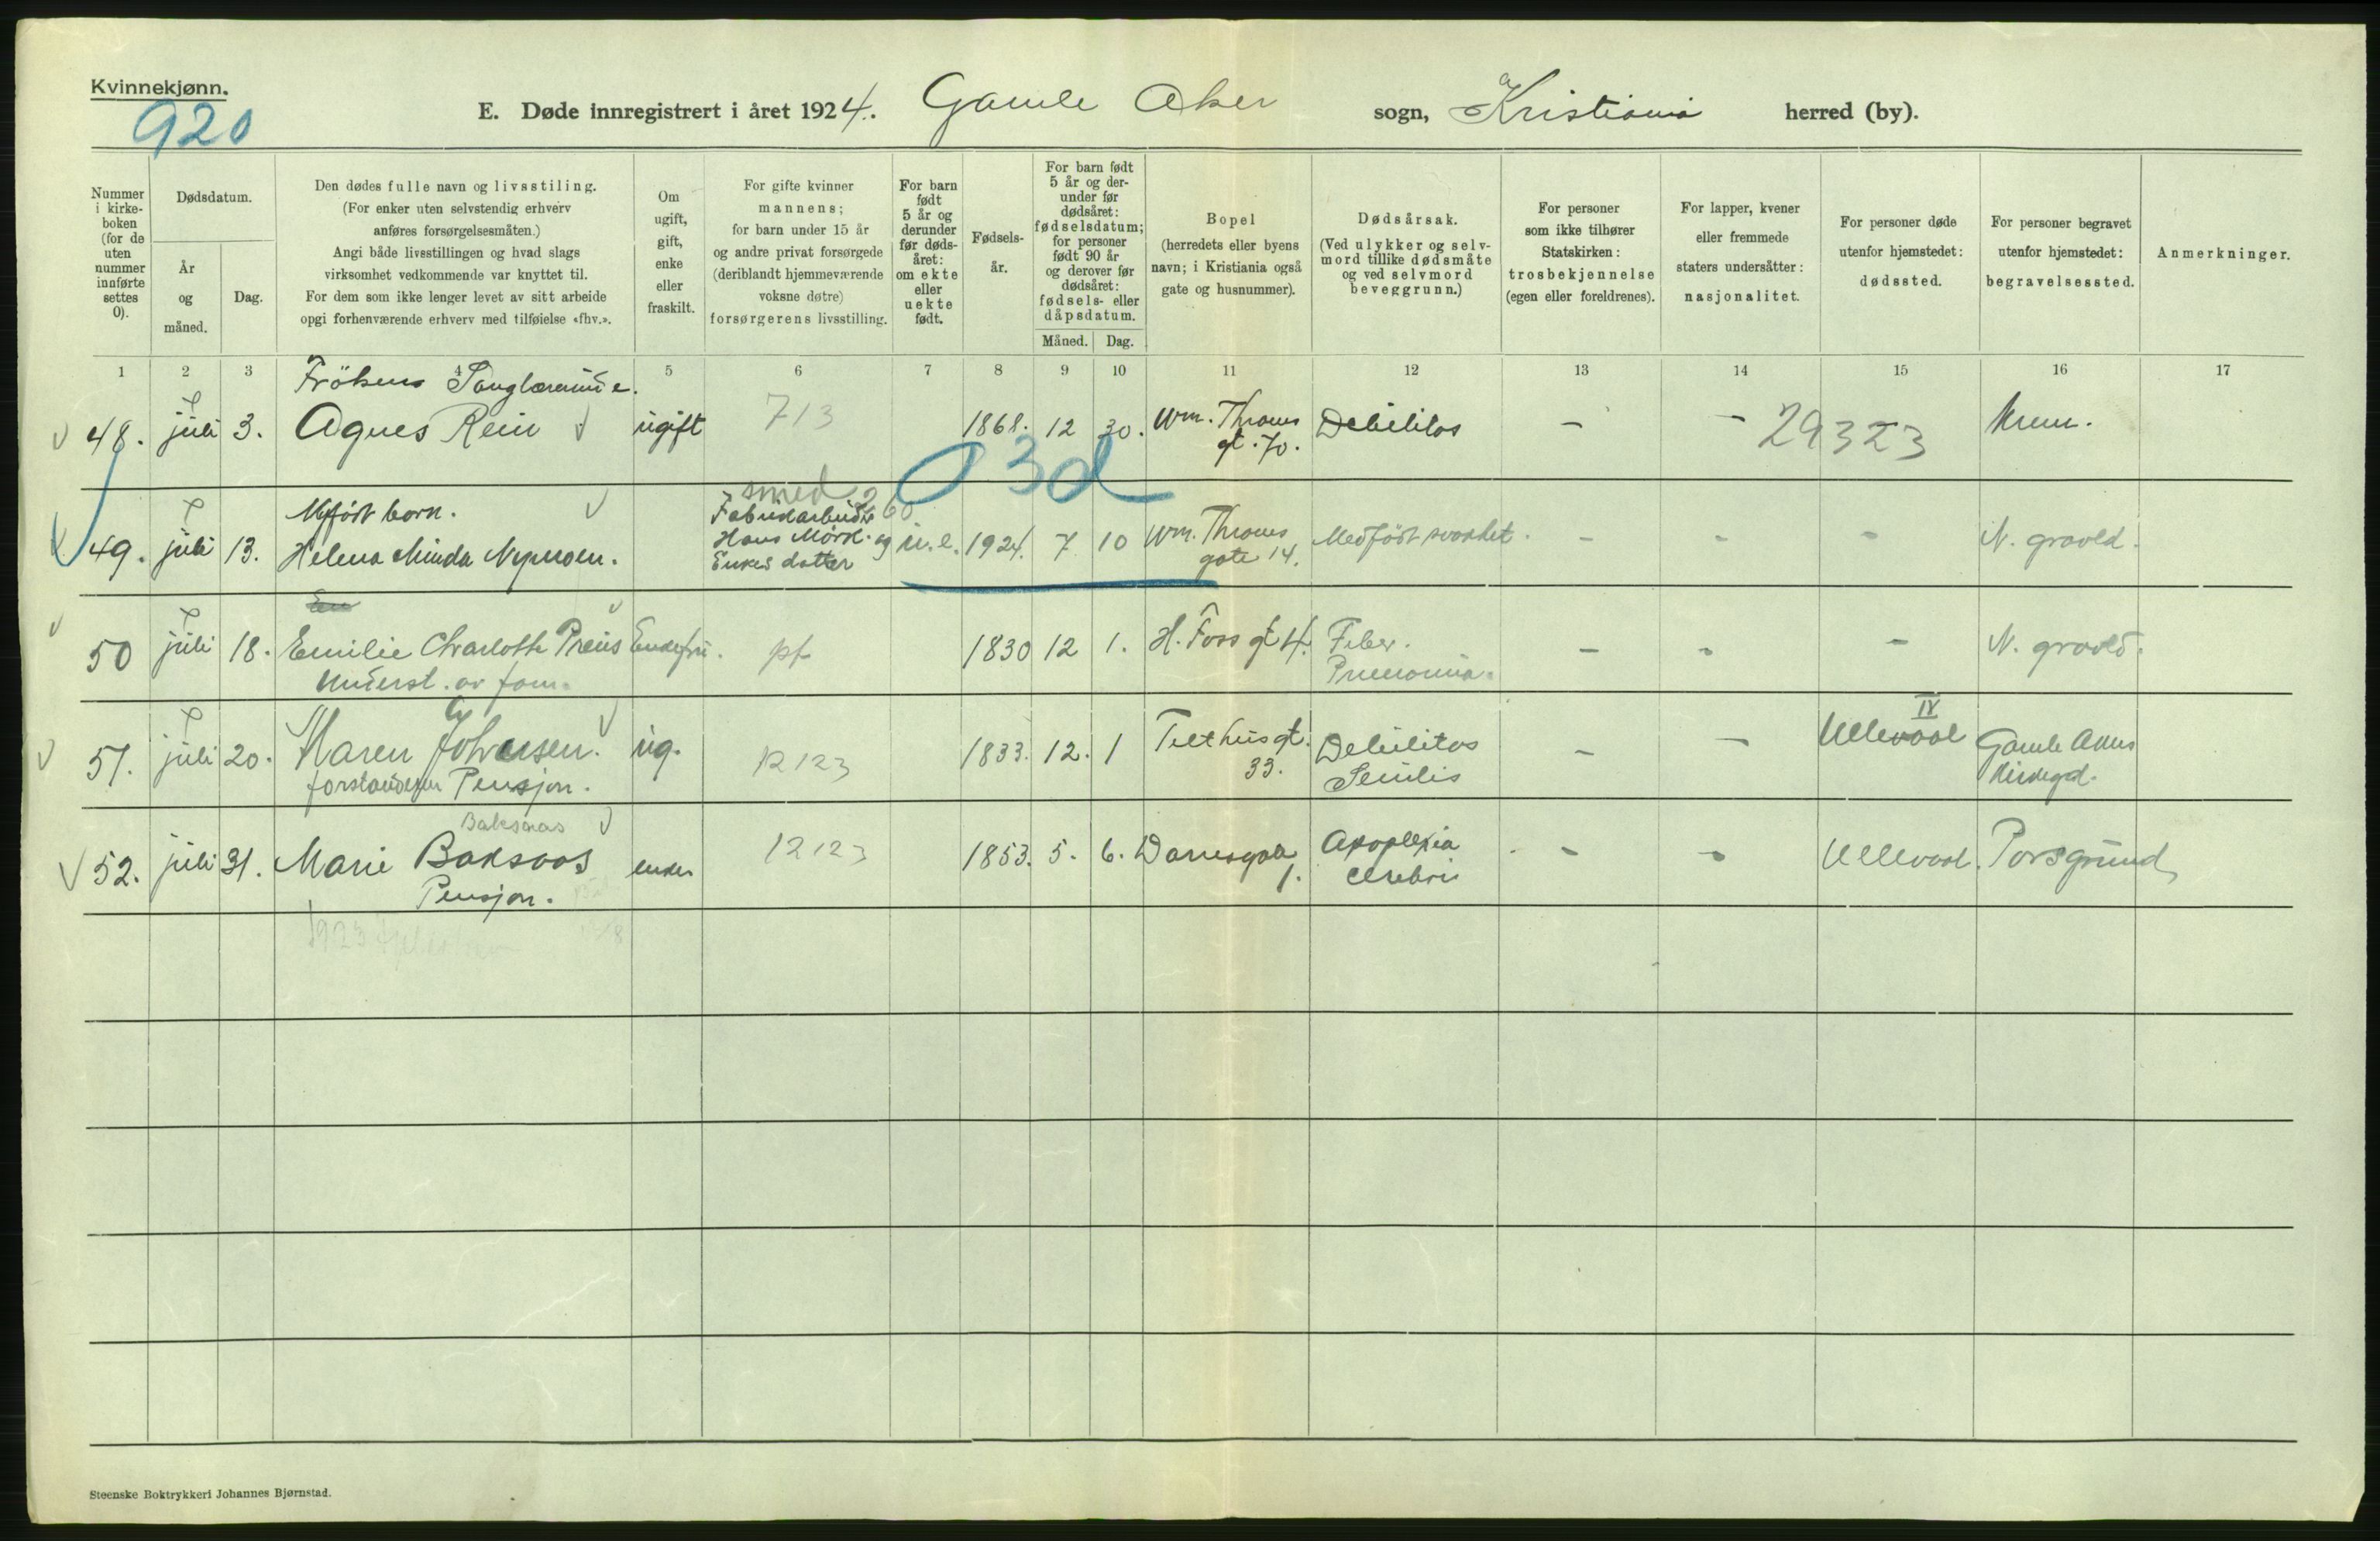 Kvinnekjønn.
920
E. Døde innregistrert i året 1924. Gamle Aker sogn, Kristiania herred (by).
Nummer i kirke-boken (for de uten nummer innførte settes 0).
Dødsdatum.
År og måned.
Dag.
Den dødes fulle navn og livsstiling.
(For enker uten selvstendig erhverv
anføres forsørgelsesmåten.)
Angi både livsstillingen og hvad slags
virksomhet vedkommende var knyttet til.
For dem som ikke lenger levet av sitt arbeide
opgi forhenværende erhverv med tilføielse «fhv.».
Om ugift, gift, enke eller fraskilt.
For gifte kvinner
mannens;
for barn under 15 år
og andre privat forsørgede
(deriblandt hjemmeværende
voksne døtre)
forsørgerens livsstilling.
For barn født 5 år og derunder før døds-året: om ekte eller uekte født.
Fødsels-år.
For barn født 5 år og der-under før dødsåret: fødselsdatum; for personer født 90 år og derover før dødsåret: fødsels- eller dåpsdatum.
Måned. Dag.
Bopel
(herredets eller byens
navn; i Kristiania også
gate og husnummer).
Dødsårsak.
(Ved ulykker og selv-
mord tillike dødsmåte
og ved selvmord
beveggrunn.)
For personer
som ikke tilhører
Statskirken:
trosbekjennelse
(egen eller foreldrenes).
For lapper, kvener
eller fremmede
staters undersåtter:
nasjonalitet.
For personer døde
utenfor hjemstedet:
dødssted.
For personer begravet
utenfor hjemstedet:
begravelsessted.
Anmerkninger.
1 2 3 4 5 6 7 8 9 10 11 12 13 14 15 16 17
Frøken
48. juli 3. Agnes Rein ugift 713 1868. 12 30. Wm. Thranes gt. 70. Debilitas – – 29323 Krem.
03d
49. juli 13. Nyfødt barn. Helena Minda Nymoen. smed 260 Fabrikarbeider Hans Mørk og Enkes datter u.e. 1924. 7 10 Wm. Thranes gate 14. Medfødt svakhet. – – – N. gravld.
50 juli 18. Emilie Charlotte Preus Underst. av fam. Enkefru. pf 1830 12 1. H. Foss gt 4. Feber. Pneumonia. – – – N. gravld.
51. juli 20. Maren Johansen. forstanderin Pensjon. ug. 12123 1833. 12. 1 Telthusgt. 33. Debilitas Senilis – – IV Ullevaal Gamle Akers Kirkegd.
Baksaas
52. juli 31. Marie Baksaas Pensjon. enke 12123 1853. 5. 6. Darresgate 1. Apoplexia cerebri – – Ullevaal. Porsgrund
Steenske Boktrykkeri Johannes Bjørnstad.